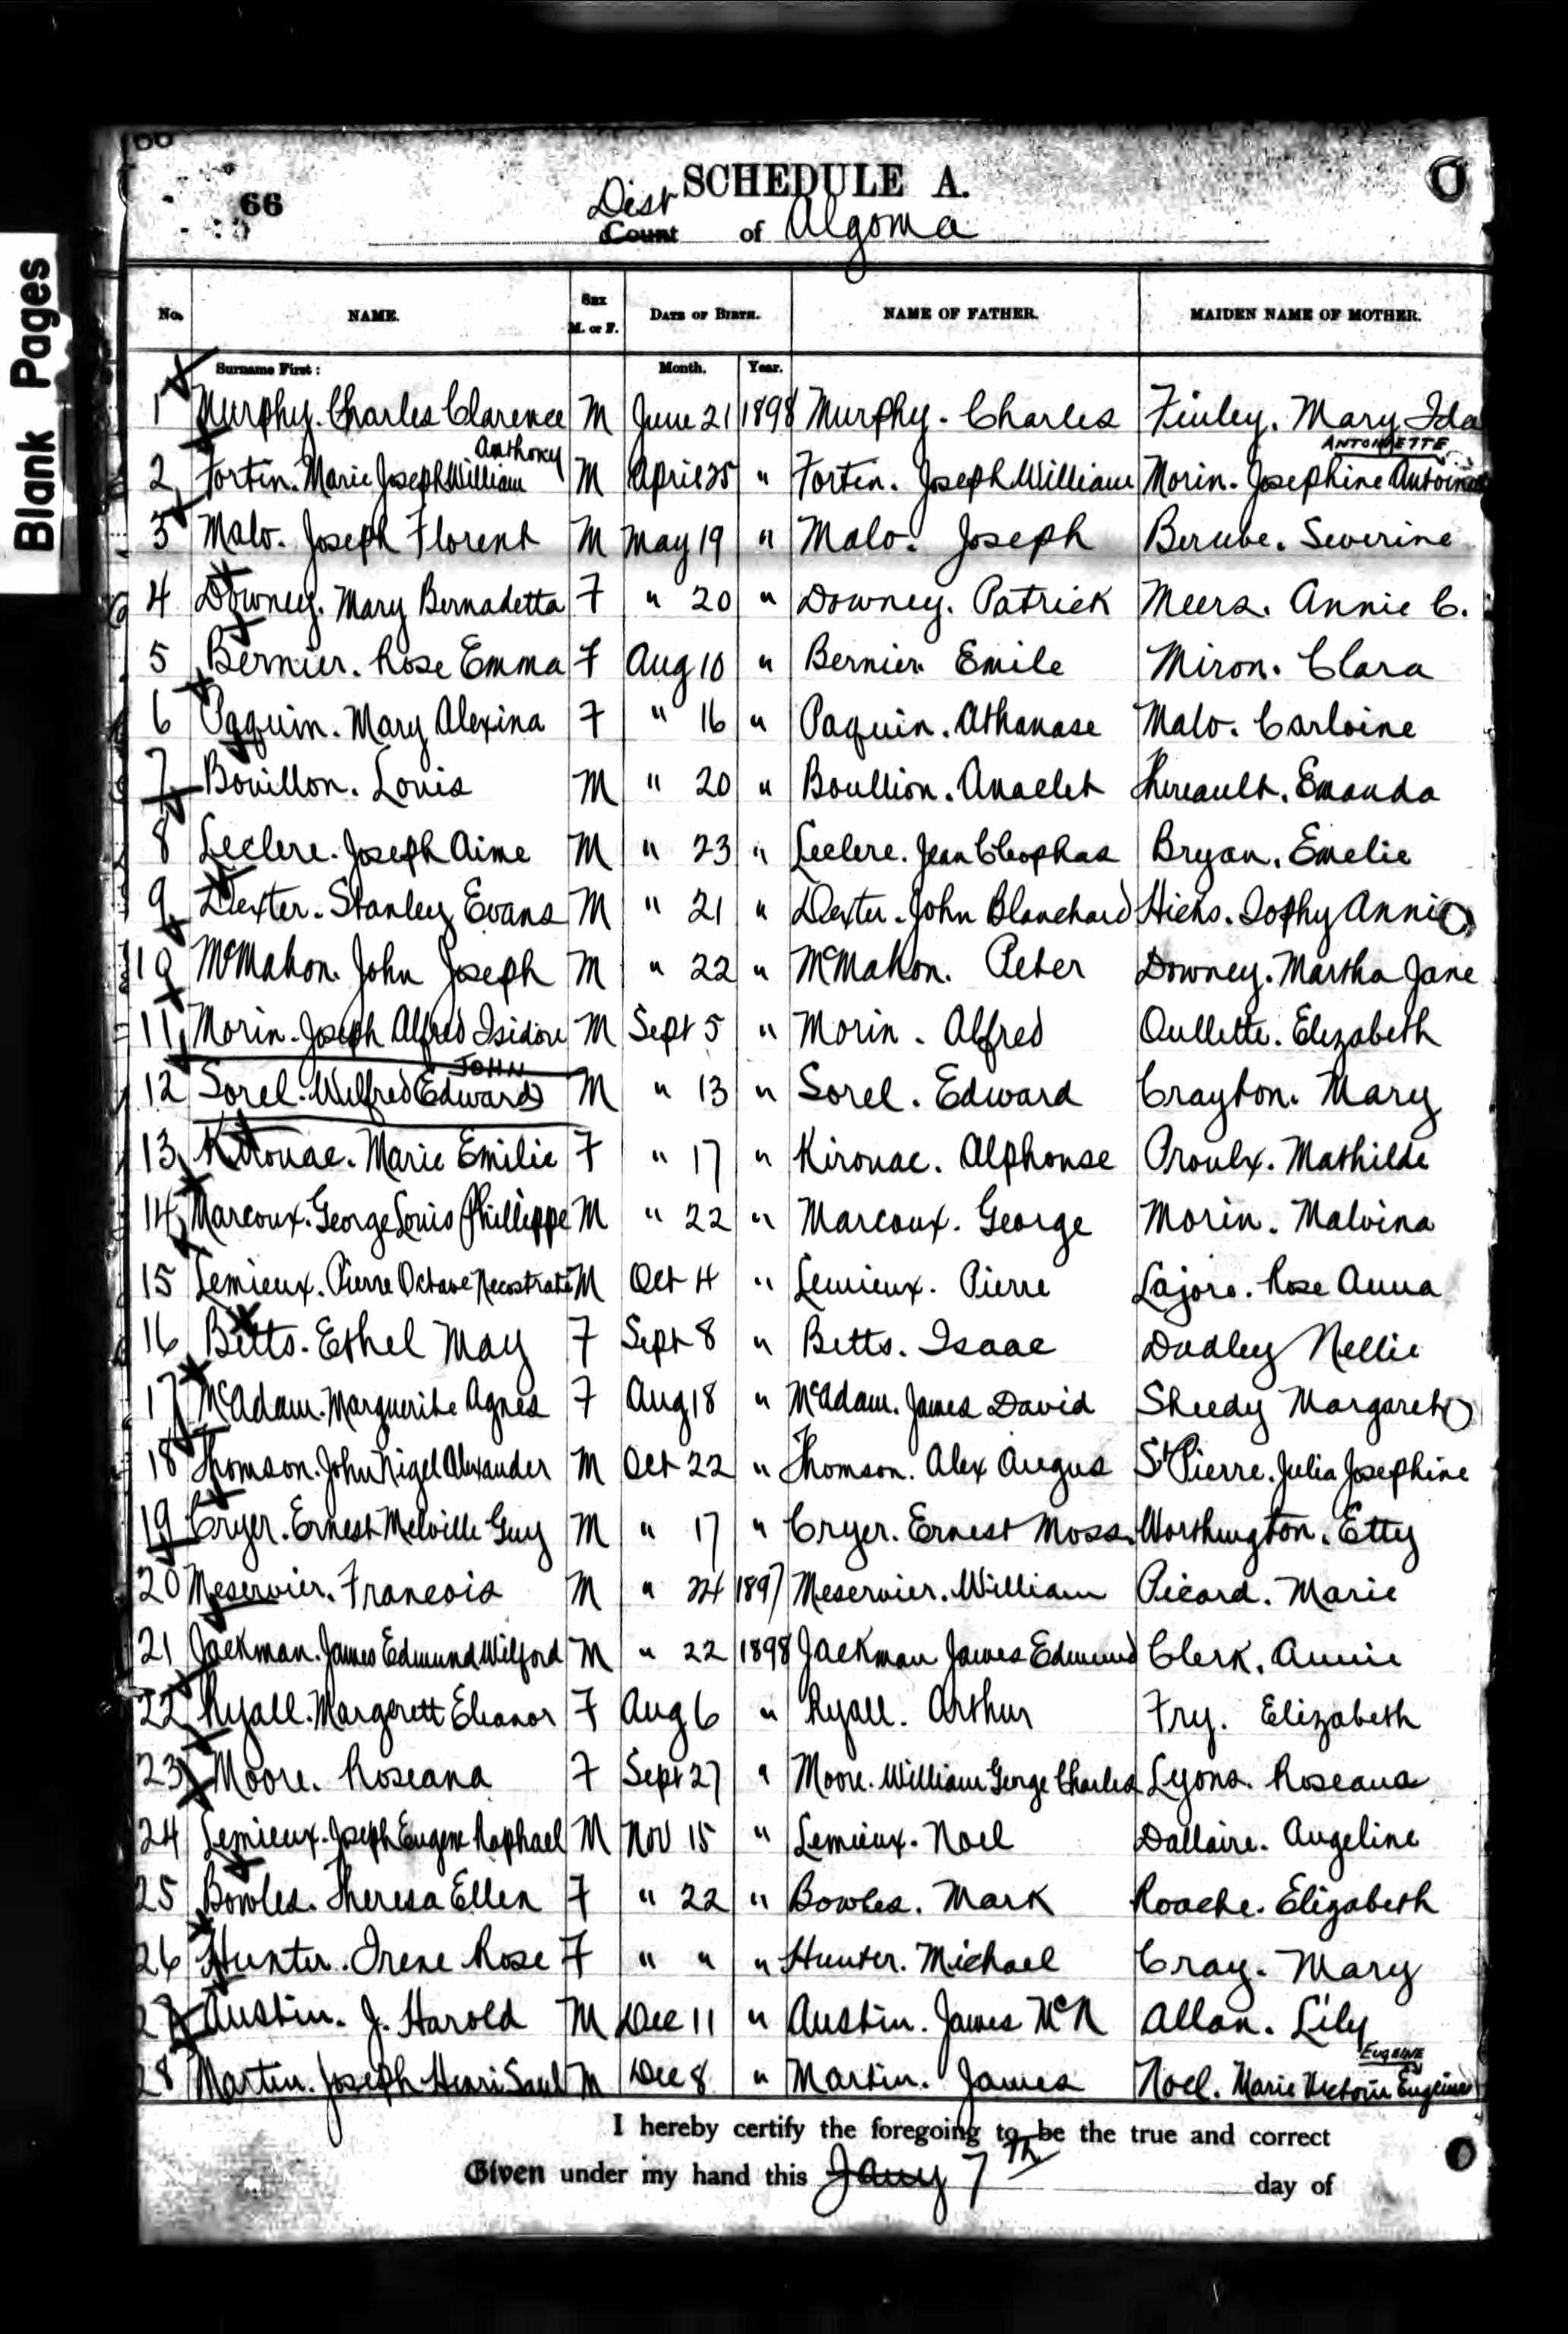 66
SCHEDULE A.
Dist
Count of Algoma
No. NAME. Sex M. or F. DATE OF BIRTH. NAME OF FATHER. MAIDEN NAME OF MOTHER.
Surname First: Month. Year.
1 Murphy. Charles Clarence M June 21 1898 Murphy. Charles Finley. Mary Ida
Anthony ANTOINETTE
2 Fortin. Marie Joseph William M April 25 " Fortin. Joseph William Morin. Josephine
3 Malo. Joseph Florent M May 19 " Malo. Joseph Berube. Severine
4 Downey. Mary Bernadetta F " 20 " Downey. Patrick Meers. Annie C.
5 Bernier. Rose Emma F Aug 10 " Bernier. Emile Miron. Clara
6 Paquin. Mary Alexina F " 16 " Paquin. Athanase Malo. Carloine
7 Bouillon. Louis M " 20 " Boullion. Anaclet Thereault. Emanda
8 Leclere. Joseph Aime M " 23 " Leclere. Jean Cleophas Bryan. Emelie
9 Dexter. Stanley Evans M " 21 " Dexter. John Blanchard Hicks. Sophy Annie
10 McMahon. John Joseph M " 22 " McMahon. Peter Downey. Martha Jane
11 Morin. Joseph Alfred Isidore M Sept 5 " Morin. Alfred Oullette. Elizabeth
JOHN
12 Sorel. Wilfred (Edward) M " 13 " Sorel. Edward Crayton. Mary
13 Kirouac. Marie Emilie F " 17 " Kirouac. Alphonse Proulx. Mathilde
14 Marcoux. George Louis Phillippe M " 22 " Marcoux. George Morin. Malvina
15 Lemieux. Pierre Octave M Oct 4 " Lemieux. Pierre Lajore. Rose Anna
16 Betts. Ethel May F Sept 8 " Betts. Isaac Dudley Nellie
17 McAdam. Marguerite Agnes F Aug 18 " McAdam. James David Sheedy Margaret
18 Thomson. John Nigel Alexander M Oct 22 " Thomson. Alex Angus St Pierre. Julia Josephine
19 Cryer. Ernest Melville Guy M " 17 " Cryer. Ernest Moss. Worthington. Etty
20 Meservier. Francois M " 24 1897 Meservier. William Picard. Marie
21 Jackman. James Edmund Wilford M " 22 1898 Jackman James Edmund Clerk. Annie
22 Ryall. Margerett Eleanor F Aug 6 " Ryall. Arthur Fry. Elizabeth
23 Moore. Roseana F Sept 27 " Moore. William George Charles Lyons. Roseana
24 Lemieux. Joseph Eugene Raphael M Nov 15 " Lemieux. Noel Dallaire. Angeline
25 Bowles. Theresa Ellen F " 22 " Bowles. Mark Roache. Elizabeth
26 Hunter. Irene Rose F " " " Hunter. Michael Cray. Mary
27 Austin. J. Harold M Dec 11 " Austin. James McN Allan. Lily
EUGEINE
28 Martin. Joseph Henri Saul M Dec 8 " Martin. James Noel. Marie Victorin
I hereby certify the foregoing to be the true and correct
Given under my hand this Jany 7th day of
Blank Pages